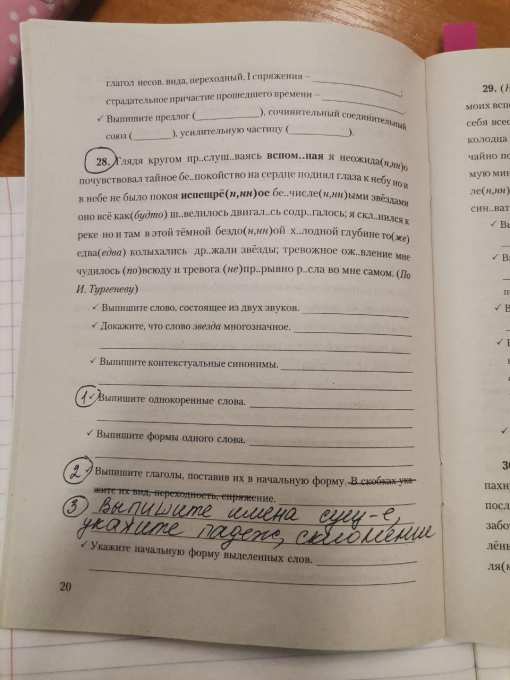 глагол несов. вида, переходный, I спряжения – ____________;
страдательное причастие прошедшего времени – ____________.
✓ Выпишите предлог (____________), сочинительный соединительный
союз (________), усилительную частицу (____________).
28. Глядя кругом пр..слуш..ваясь вспом..ная я неожида(н,нн)о
почувствовал тайное бе..покойство на сердце поднял глаза к небу но и
в небе не было покоя испещрё(н,нн)ое бе..числе(н,нн)ыми звёздами
оно всё как(будто) ш..велилось двигал..сь содр..галось; я скл..нился к
реке но и там в этой тёмной бездо(н,нн)ой х..лодной глубине то(же)
едва(едва) колыхались др..жали звёзды; тревожное ож..вление мне
чудилось (по)всюду и тревога (не)пр..рывно р..сла во мне самом. (По
И. Тургеневу)
✓ Выпишите слово, состоящее из двух звуков.
✓ Докажите, что слово звезда многозначное.
✓ Выпишите контекстуальные синонимы.
1 ✓ Выпишите однокоренные слова.
✓ Выпишите формы одного слова.
2 ✓ Выпишите глаголы, поставив их в начальную форму. В скобках ука-
жите их вид, переходность, спряжение.
3 Выпишите имена сущ-е,
укажите падеж, склонение
✓ Укажите начальную форму выделенных слов.
20
29. (Н
моих всп
себя всео
колодца
чайно по
мую мин
ле(н,нн)
син..ват
✓ Вы
✓ В
✓ В
30
пахн
посл
забо
лёны
ля(н